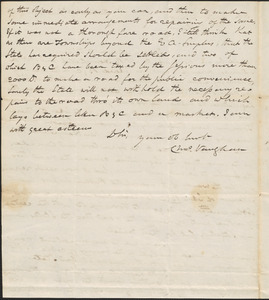 of this typed as early as you can, and then to make
some immediate arrangement for repairing of the same,
if it was not a thorough fare road. I still think that
as there are Townships beyond the
State has required should be settled and two of
which B & C have been taxed by the Sessions more than
2000 $ to make a road for the public convenience
Surely the State will not withhold the necessary re
pairs to the road thro its own lands and which
lays between letter B & C and
with great esteem
D Sir your Ob Servt
Chas Vaughan